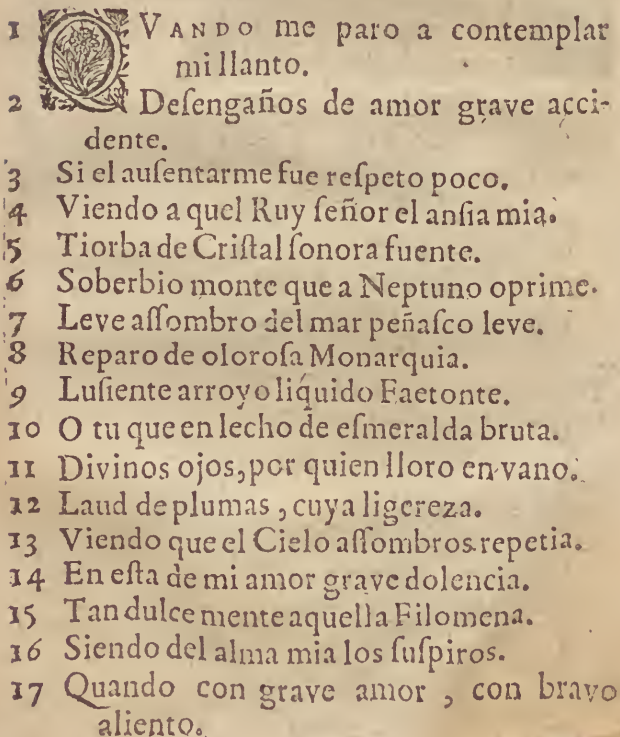 1 QVANDO me paro a contemplar
mi llanto.
2 Deſengaños de amor grave acci-
dente.
3 Si el auſentarme fue reſpeto poco.
4 Viendo a quel Ruy ſeñor el anſia mia.
5 Tiorba de Criſtal ſonora fuente.
6 Soberbio monte que a Neptuno oprime.
7 Leve aſſombro del mar peñaſco leve.
8 Reparo de oloroſa Monarquia.
9 Luſiente arroyo liquido Faetonte.
10 O tu que en lecho de eſmeralda bruta.
11 Divinos ojos, por quien lloro en vano.
12 Laud de plumas, cuya ligereza.
13 Viendo que el Cielo aſſombros repetia.
14 En eſta de mi amor grave dolencia.
15 Tan dulce mente aquella Filomena.
16 Siendo del alma mia los ſuſpiros.
17 Quando con grave amor, con bravo
aliento.